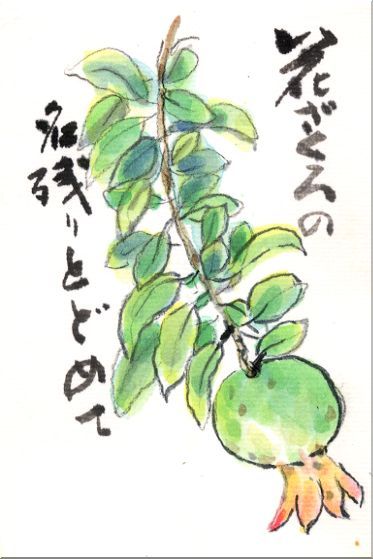 花ざくろの
名残りとどめて